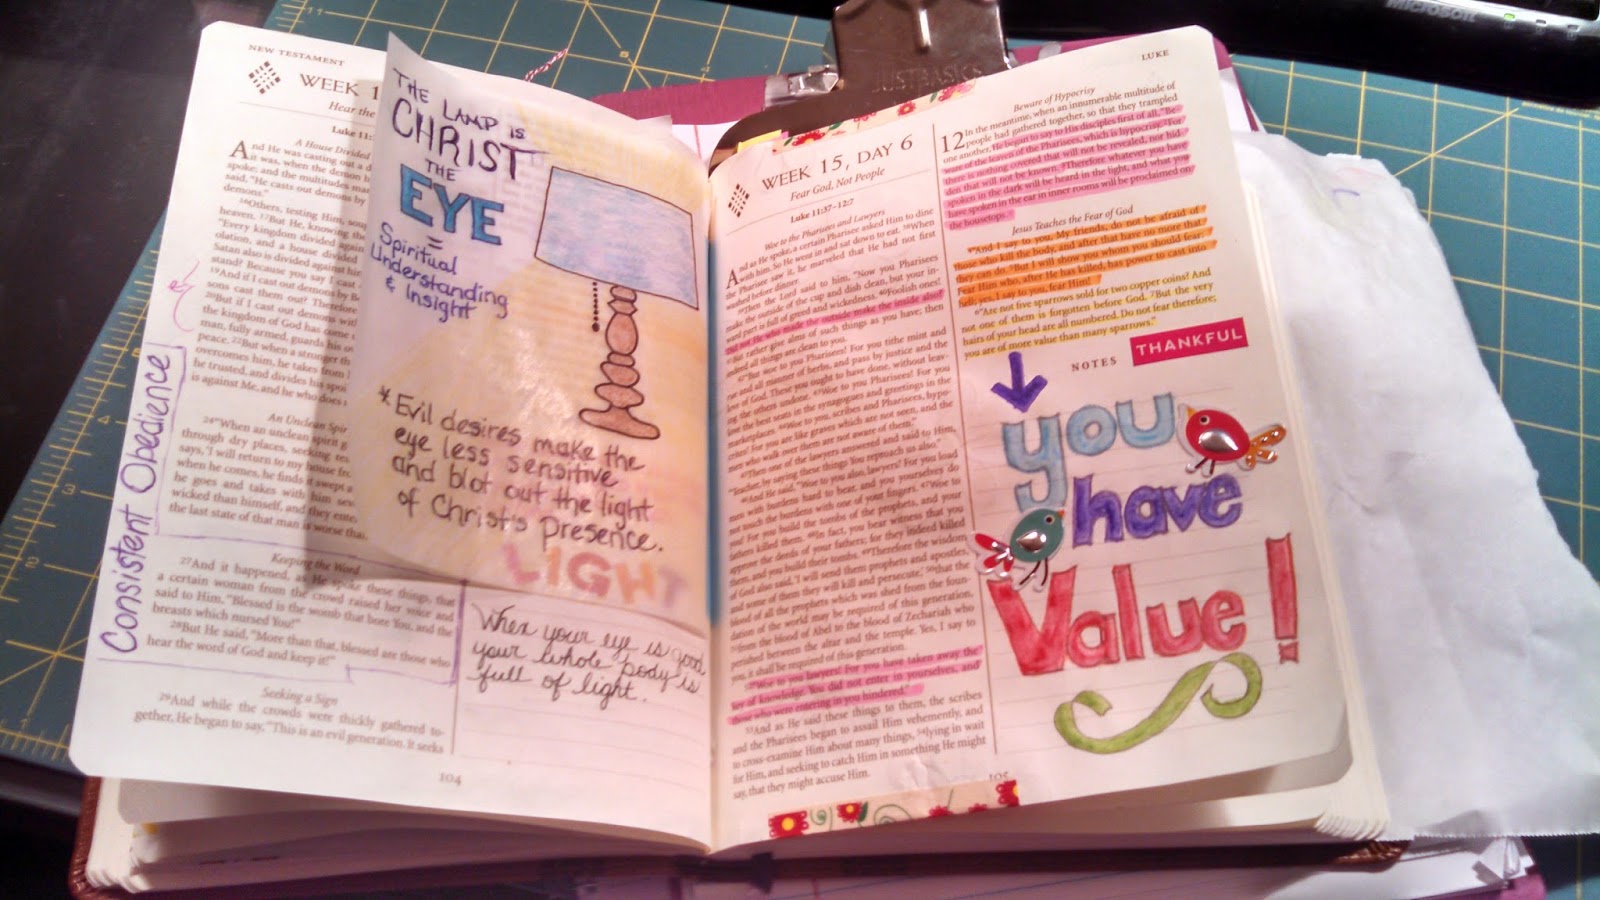 NEW TESTAMENT
WEEK 1
Hear the
Luke 11:
A House Divided
And He was casting out a d
it was, when the demon h
spoke; and the multitudes mar
said, "He casts out demons by
demons."
16Others, testing Him, soug
heaven. 17But He, knowing the
"Every kingdom divided again
olation, and a house divided
Satan also is divided against hi
stand? Because you say I cast
19And if I cast out demons by B
sons cast them out? Therefore
20But if I cast out demons with
the kingdom of God has come
man, fully armed, guards his ow
peace. 22But when a stronger th
overcomes him, he takes from
he trusted, and divides his spoi
is against Me, and he who does
An Unclean Spir
24"When an unclean spirit g
through dry places, seeking res
says, 'I will return to my house fro
when he comes, he finds it swept a
he goes and takes with him seve
wicked than himself, and they ente
the last state of that man is worse tha
Keeping the Word
27And it happened, as He spoke these things, that
a certain woman from the crowd raised her voice and
said to Him, "Blessed is the womb that bore You, and the
breasts which nursed You!"
28But He said, "More than that, blessed are those who
hear the word of God and keep it!"
Seeking a Sign
29And while the crowds were thickly gathered to-
gether, He began to say, "This is an evil generation. It seeks
104
Consistent Obedience
THE LAMP IS
CHRIST
THE
EYE
=
Spiritual
Understanding
& Insight
* Evil desires make the
eye less sensitive
and blot out the light
of Christ's presence.
LIGHT
When your eye is good
your whole body is
full of light.
WEEK 15, DAY 6
Fear God, Not People
Luke 11:37–12:7
Woe to the Pharisees and Lawyers
And as He spoke, a certain Pharisee asked Him to dine
with him. So He went in and sat down to eat. 38When
the Pharisee saw it, he marveled that He had not first
washed before dinner.
39Then the Lord said to him, "Now you Pharisees
make the outside of the cup and dish clean, but your in-
ward part is full of greed and wickedness. 40Foolish ones!
Did not He who made the outside make the inside also?
41But rather give alms of such things as you have; then
indeed all things are clean to you.
42"But woe to you Pharisees! For you tithe mint and
rue and all manner of herbs, and pass by justice and the
love of God. These you ought to have done, without leav-
ing the others undone. 43Woe to you Pharisees! For you
love the best seats in the synagogues and greetings in the
marketplaces. 44Woe to you, scribes and Pharisees, hypo-
crites! For you are like graves which are not seen, and the
men who walk over them are not aware of them."
45Then one of the lawyers answered and said to Him,
"Teacher, by saying these things You reproach us also."
46And He said, "Woe to you also, lawyers! For you load
men with burdens hard to bear, and you yourselves do
not touch the burdens with one of your fingers. 47Woe to
you! For you build the tombs of the prophets, and your
fathers killed them. 48In fact, you bear witness that you
approve the deeds of your fathers; for they indeed killed
them, and you build their tombs. 49Therefore the wisdom
of God also said, 'I will send them prophets and apostles,
and some of them they will kill and persecute,' 50that the
blood of all the prophets which was shed from the foun-
dation of the world may be required of this generation,
51from the blood of Abel to the blood of Zechariah who
perished between the altar and the temple. Yes, I say to
you, it shall be required of this generation.
52"Woe to you lawyers! For you have taken away the
key of knowledge. You did not enter in yourselves, and
those who were entering in you hindered."
53And as He said these things to them, the scribes
and the Pharisees began to assail Him vehemently, and
to cross-examine Him about many things, 54lying in wait
for Him, and seeking to catch Him in something He might
say, that they might accuse Him.
LUKE
Beware of Hypocrisy
12 In the meantime, when an innumerable multitude of
people had gathered together, so that they trampled
one another, He began to say to His disciples first of all, "Be-
ware of the leaven of the Pharisees, which is hypocrisy. 2For
there is nothing covered that will not be revealed, nor hid-
den that will not be known. 3Therefore whatever you have
spoken in the dark will be heard in the light, and what you
have spoken in the ear in inner rooms will be proclaimed on
the housetops.
Jesus Teaches the Fear of God
4"And I say to you, My friends, do not be afraid of
those who kill the body, and after that have no more that
they can do. 5But I will show you whom you should fear:
Fear Him who, after He has killed, has power to cast into
hell; yes, I say to you, fear Him!
6"Are not five sparrows sold for two copper coins? And
not one of them is forgotten before God. 7But the very
hairs of your head are all numbered. Do not fear therefore;
you are of more value than many sparrows."
NOTES
THANKFUL
you
have
Value!
105
JUSTBASICS
Microsoft